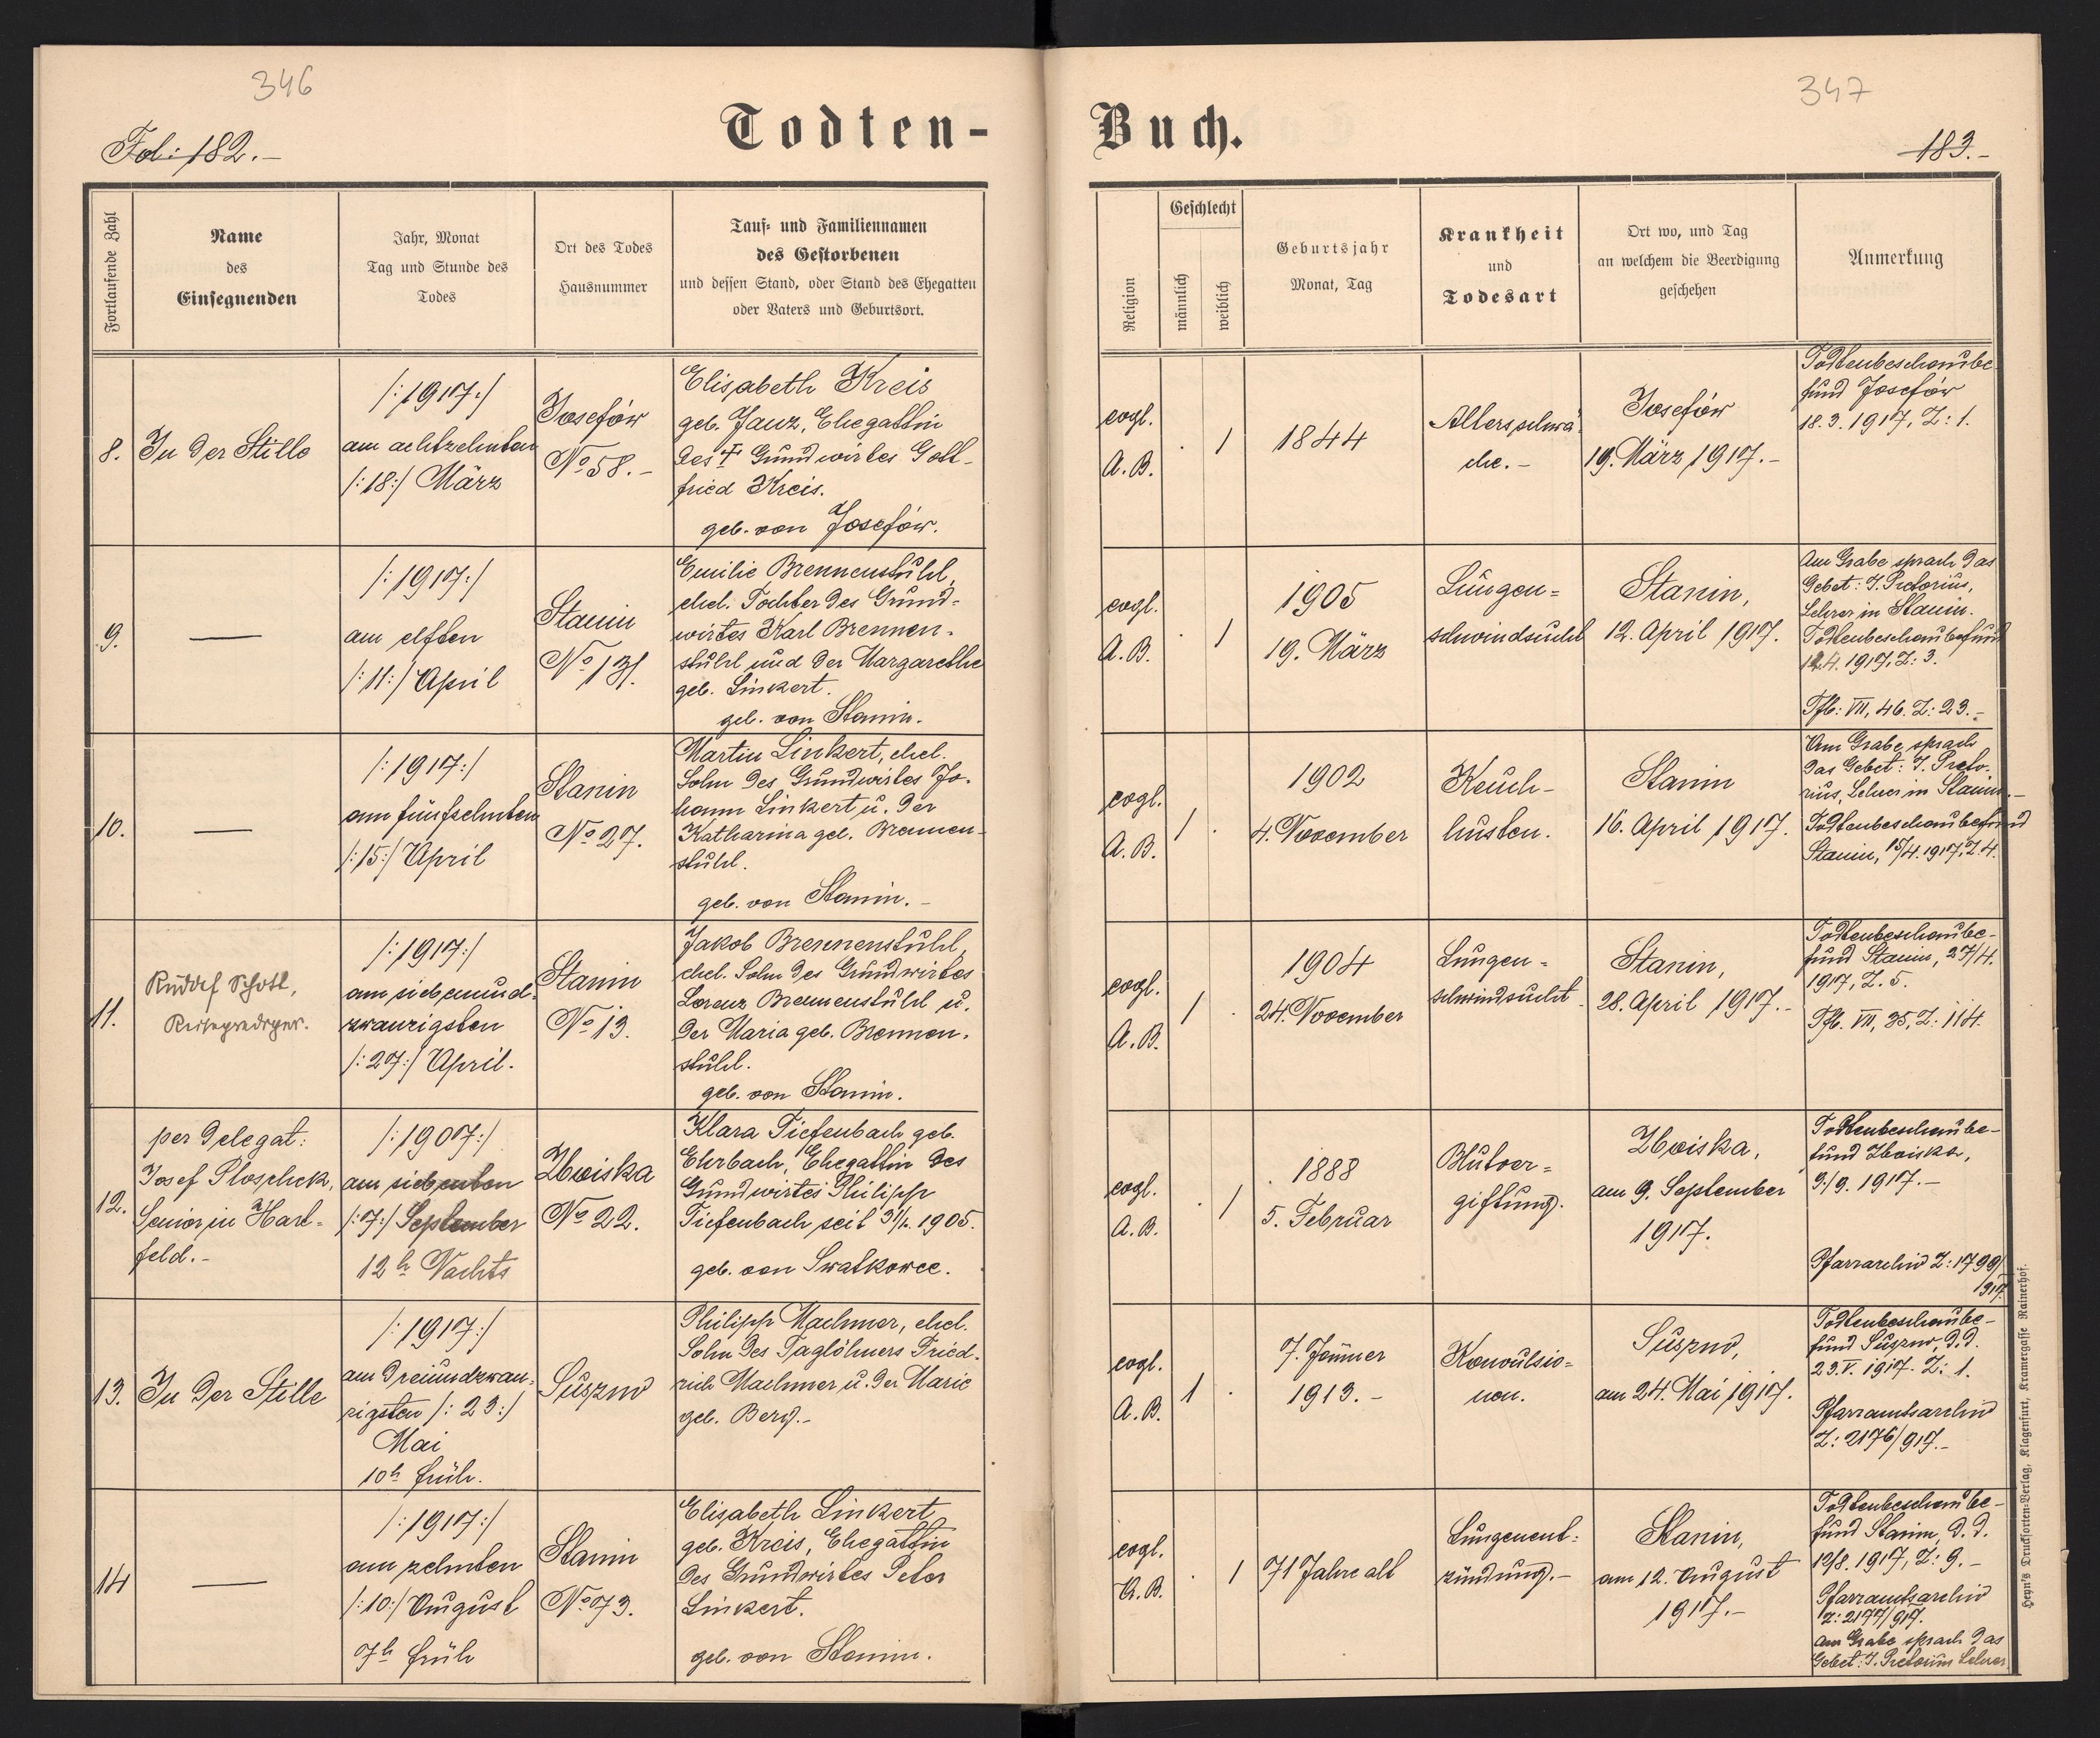 346
Fol: 182.-
Todten-
Fortlaufende Zahl
Name
des
Einsegnenden
Jahr, Monat
Tag und Stunde des
Todes
Ort des Todes
Hausnummer
Tauf- und Familiennamen
des Gestorbenen
und dessen Stand, oder Stand des Ehegatten
oder Vaters und Geburtsort.
8.
In der Stille
/:1917:/
am achtzehnten
/:18:/ März
Josefów
No 58.-
Elisabeth Kreis
geb. Janz, Ehegattin
des † Grundwirtes Gott-
fried Kreis.
geb. von Josefów.
9.
—
/:1917:/
am elften
/:11:/ April
Stanin
No 131.
Emilie Brennenstuhl,
ehel. Tochter des Grund-
wirtes Karl Brennen-
stuhl und der Margarethe
geb. Linkert.
geb. von Stanin.
10.
—
/:1917:/
am fünfzehnten
/:15:/ April
Stanin
No 27.
Martin Linkert, ehel.
Sohn des Grundwirtes Jo-
hann Linkert u. der
Katharina geb. Brennen-
stuhl.
geb. von Stanin.-
11.
Rudolf Schott,
Reiseprediger.
/:1917:/
am siebenund-
zwanzigsten
/:27:/ April.
Stanin
No 13.
Jakob Brennenstuhl,
ehel. Sohn des Grundwirtes
Lorenz Brennenstuhl u.
der Maria geb. Brennen-
stuhl.
geb. von Stanin.
12.
per delegat:
Josef Ploschek,
Senior in Hart-
feld.-
/:1907:/
am siebenten
/:7:/ September
12h Nachts
Zboiska
No 22.
Klara Tiefenbach geb.
Ehrbach, Ehegattin des
Grundwirtes Philipp
Tiefenbach seit 31/1. 1905.
geb. von Swatkowce.
13.
In der Stille
/:1917:/
am dreiundzwan-
zigsten /:23:/
Mai
10h früh.
Suszno
Philipp Machmer, ehel.
Sohn des Taglöhners Fried-
rich Machmer u. der Marie
geb. Berg.-
14
—
/:1917:/
am zehnten
/:10:/ August
7h früh
Stanin
No 73.
Elisabeth Linkert
geb. Kreis, Ehegattin
des Grundwirtes Peter
Linkert.
geb. von Stanin.
347
183.-
Buch.
Religion
Geschlecht
männlich
weiblich
Geburtsjahr
Monat, Tag
Krankheit
und
Todesart
Ort wo, und Tag
an welchem die Beerdigung
geschehen
Anmerkung
evgl.
A.B.
. 1
1844
Altersschwä-
che.-
Josefów
19. März 1917.-
Todtenbeschaube-
fund Josefów
18.3.1917, Z: 1.
evgl.
A.B.
. 1
1905
19. März
Lungen-
schwindsucht
Stanin,
12. April 1917.
Am Grabe sprach das
Gebet: J. Pretorius,
Lehrer in Stanin.
Todtenbeschaubefund
12.4. 1917, Z: 3.
Tfb: VII, 46. Z: 23.-
evgl.
A.B.
1 .
1902
4. November
Keuch-
husten.
Stanin
16. April 1917.
Am Grabe sprach
das Gebet: J. Preto-
rius, Lehrer in Stanin.-
Todtenbeschaubefund
Stanin, 15/4. 1917, Z. 4.
evgl.
A.B.
1 .
1904
24. November
Lungen-
schwindsucht.
Stanin,
28. April 1917.-
Todtenbeschaube-
fund Stanin, 27/4.
1917, Z. 5.
Tfb. VII, 35, Z: 114.
evgl.
A.B.
. 1
1888
5. Februar
Blutver-
giftung.
Zboiska,
am 9. September
1917.
Todtenbeschaube-
fund Zboiska,
9/9. 1917.-
Pfarrarchiv Z: 1799/
1917.
evgl.
A.B.
1 .
7. Jänner
1913.-
Konvulsio-
nen.
Suszno,
am 24. Mai 1917.
Todtenbeschaube-
fund Suszno, d.d.
23.V. 1917. Z: 1.
Pfarramtsarchiv
Z: 2176/917.-
evgl.
A.B.
. 1
71 Jahre alt
Lungenent-
zündung.-
Stanin,
am 12. August
1917.-
Todtenbeschaube-
fund Stanin, d.d.
12/8. 1917, Z: 9.-
Pfarramtsarchiv
Z: 2177/917.
Am Grabe sprach das
Gebet: J. Pretorius Lehrer
Heyn's Drucksorten-Verlag, Klagenfurt, Kramergasse Rainerhof.